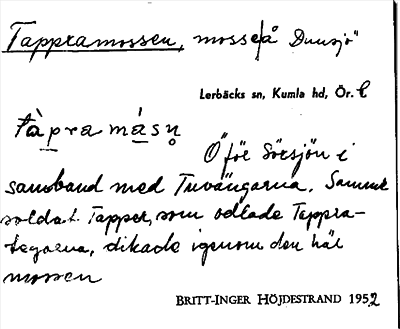 Tappramossen, mosse å Duusjö
Lerbäcks sn, Kumla hd, Ör. l
tàpra màsn̥
Ö för Sörsjön i
samband med Tuvängarna. Samme
soldat Tapper, som odlade Tappra-
tegarna, dikade igenom den här
mossen
BRITT-INGER HÖJDESTRAND 1952